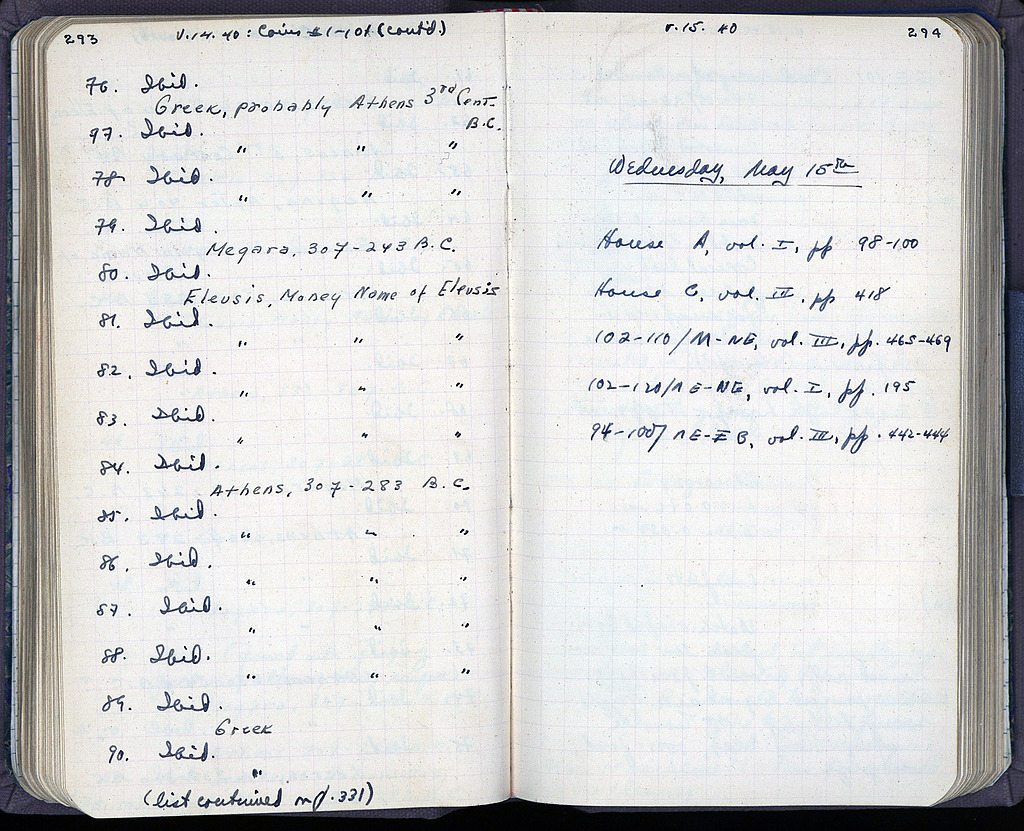 293
V.14.40: Coins #1-101 (contd.)
76. Ibid.
Greek, probably Athens 3rd Cent.
B.C.
97. Ibid.
" " "
78. Ibid.
" " "
79. Ibid.
Megara, 307-243 B.C.
80. Ibid.
Eleusis, Money Name of Eleusis
81. Ibid.
" " "
82. Ibid.
" " "
83. Ibid.
" " "
84. Ibid.
Athens, 307-283 B.C.
85. Ibid.
" " "
86. Ibid.
" " "
87. Ibid.
" " "
88. Ibid.
" " "
89. Ibid.
Greek
90. Ibid.
"
(list continued on p. 331)
V.15.40
294
Wednesday, May 15th
House A, vol. I, pp 98-100
House C, vol. III, pp 418
102-110/M-NE, vol. III, pp. 465-469
102-120/ΛE-NE, vol. I, pp. 195
94-100/ΛE-ΞB, vol. III, pp. 442-444